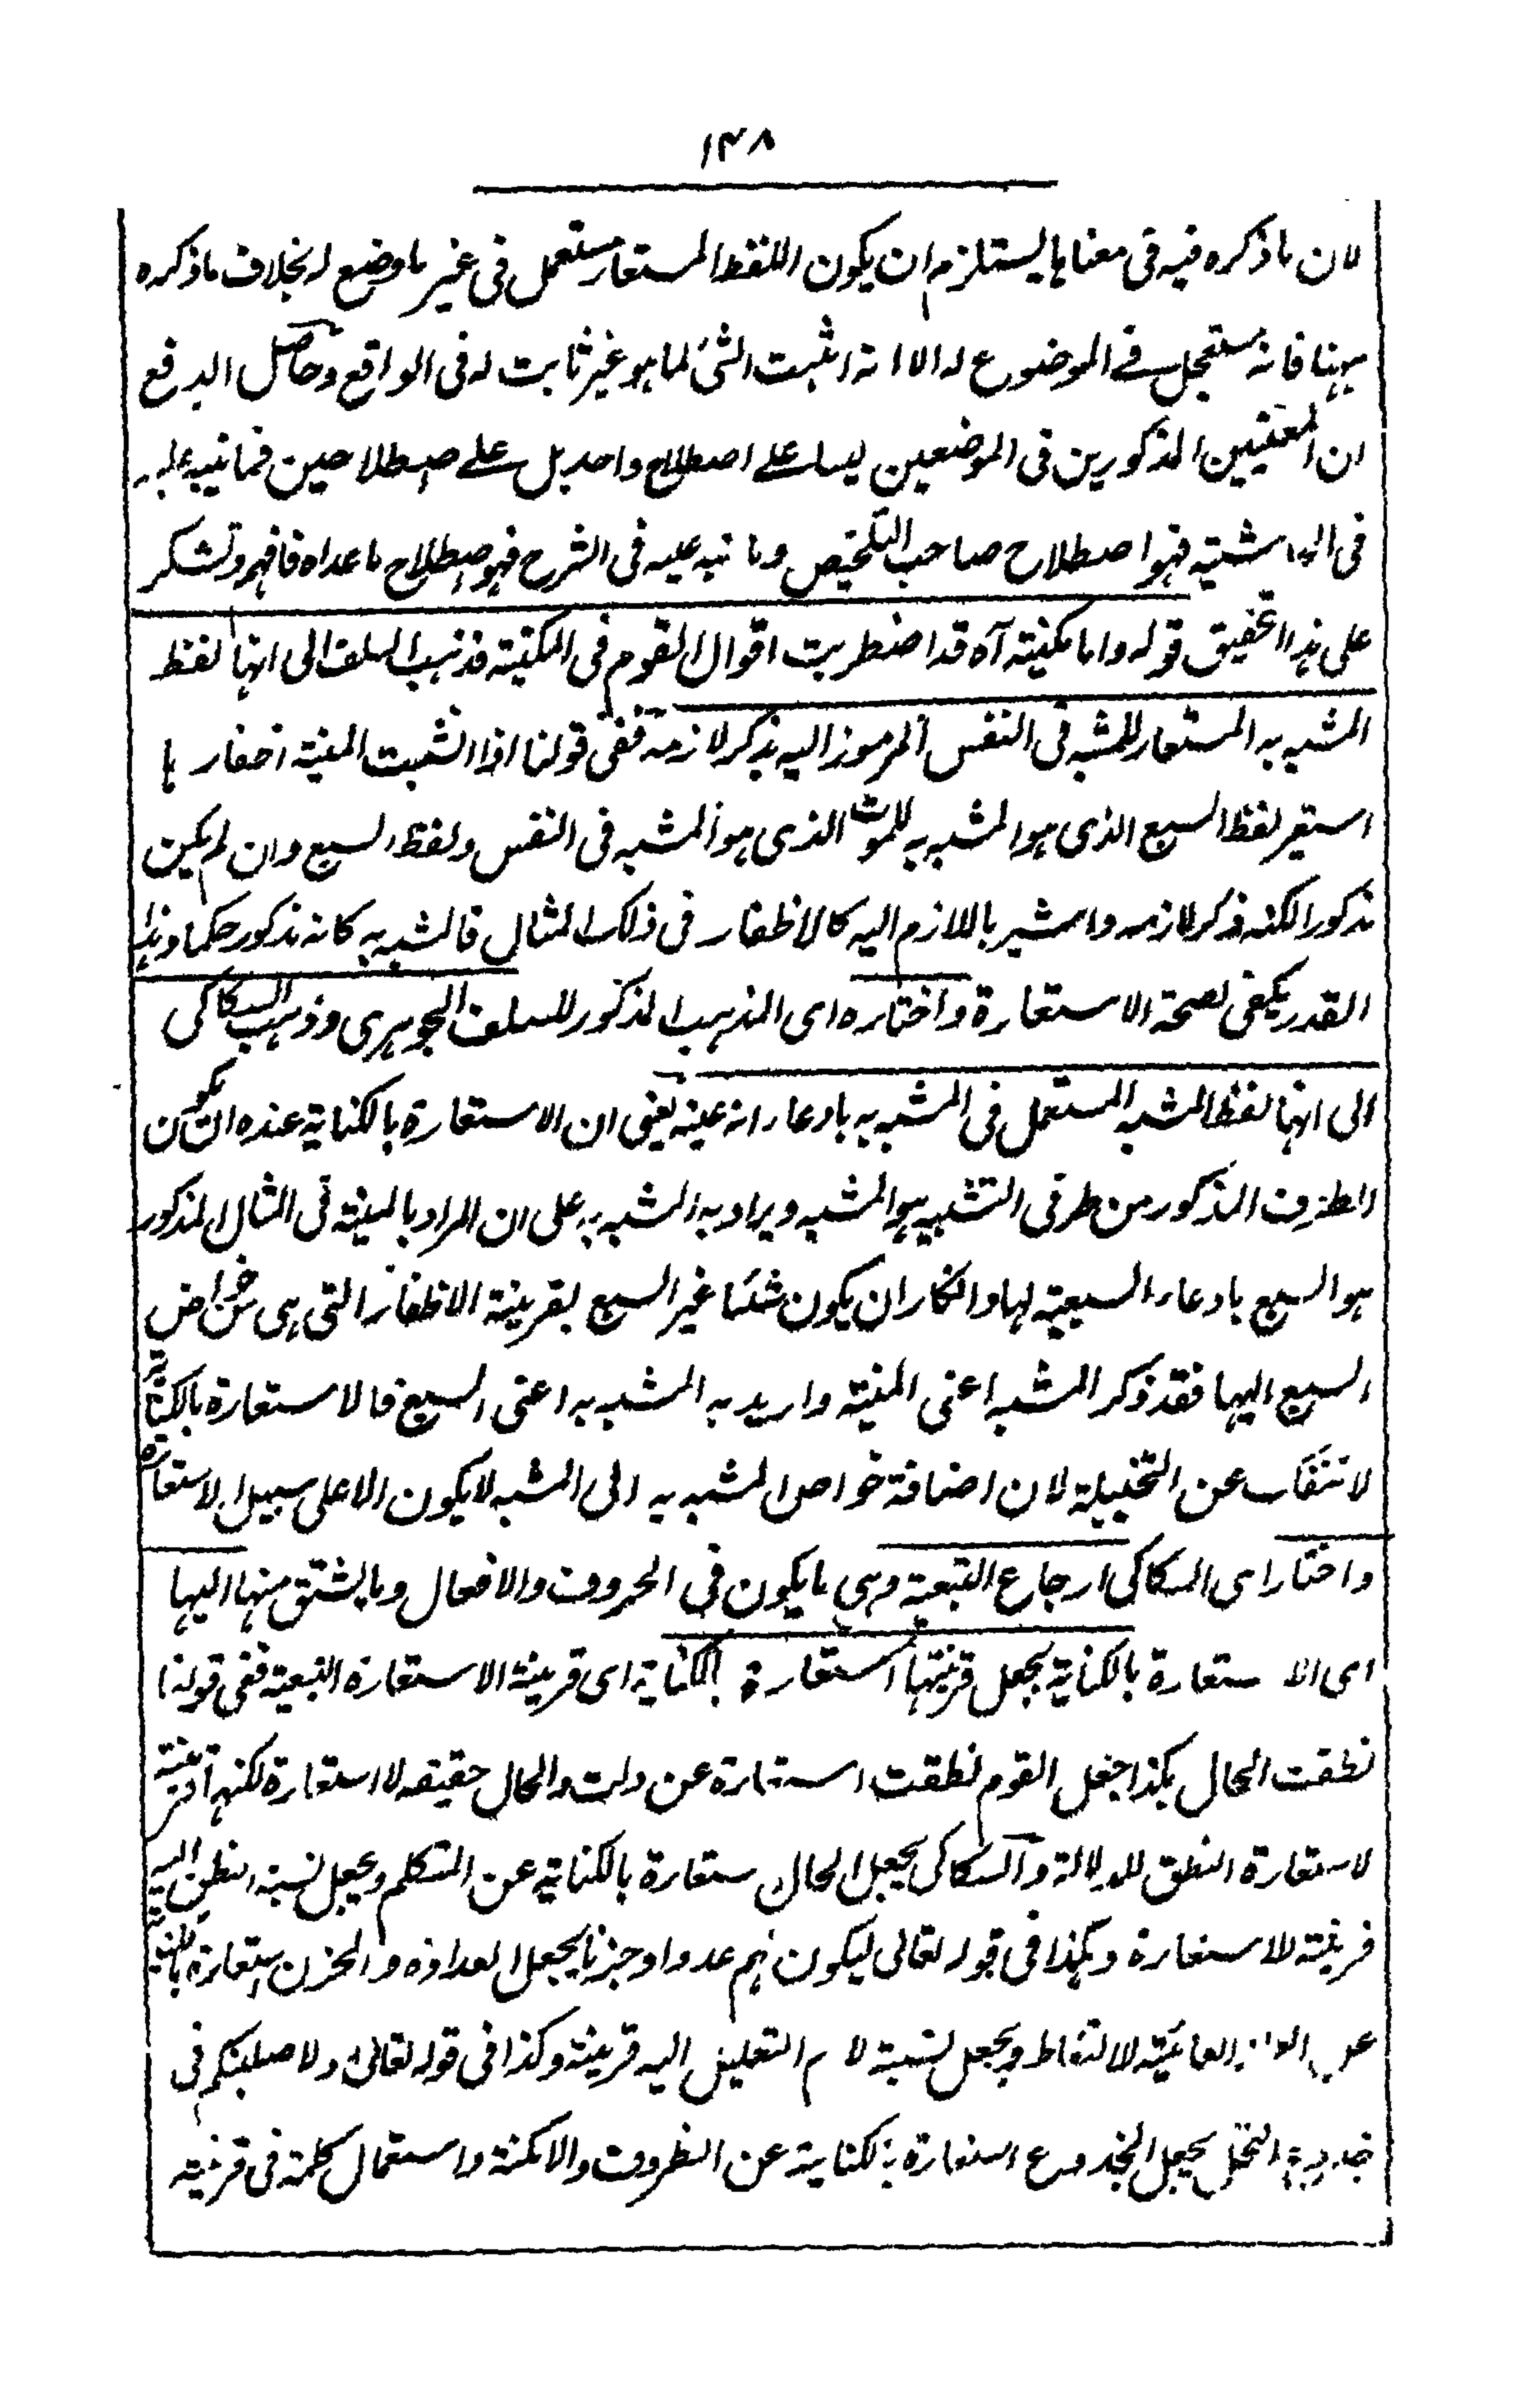 ١٤٨
لان ما ذكره فيه فى معناها يستلزم ان يكون اللفظ المستعار مستعمل فى غير ما وضع له بخلاف ما ذكره
ههنا فانه مستعمل فى الموضوع له الا انه اثبت الشئ لما هو غير ثابت له فى الواقع وحاصل الدفع
ان المعنيين المذكورين فى الموضعين ليسا على اصطلاح واحد بل على اصطلاحين فما نبه عليه
فى الحاشية فهو اصطلاح صاحب التلخيص وما نبه عليه فى الشرح فهو اصطلاح ما عداه فافهم وتشكر
على هذا التحقيق قوله واما مكنية آه قد اضطربت اقوال القوم فى المكنية فذهب السلف الى انها لفظ
المشبه به المستعار للمشبه فى النفس المرموز اليه بذكر لازمه ففى قولنا اذا انشبت المنية اظفارها
استعير لفظ السبع الذى هو المشبه به للموت الذى هو المشبه فى النفس ولفظ السبع وان لم يكن
مذكورا لكنه ذكر لازمه واشير باللازم اليه كالاظفار فى ذلك المثال فالمشبه به كانه مذكور حكما وهذا
القدر يكفى لصحة الاستعارة واختاره اى المذهب المذكور للسلف الجوهرى وذهب السكاكى
الى انها لفظ المشبه المستعمل فى المشبه به بادعاء انه عينه يعنى ان الاستعارة بالكناية عنده ان يكون
الطرف المذكور من طرفى التشبيه هو المشبه ويراد به المشبه به على ان المراد بالمنية فى المثال المذكور
هو السبع بادعاء السبعية لها وانكار ان يكون شئا غير السبع بقرينة الاظفار التى هى من خواص
السبع اليها فقد ذكر المشبه اعنى المنية واريد به المشبه به اعنى السبع فالاستعارة بالكناية
لا تنفك عن التخييلة لان اضافة خواص المشبه به الى المشبه لا يكون الا على سبيل الاستعارة
واختار اى السكاكى ارجاع التبعية وهى ما يكون فى الحروف والافعال وما يشتق منها اليها
اى الاستعارة بالكناية بجعل قرينتها استعارة بالكناية اى قرينة الاستعارة التبعية ففى قولنا
نطقت الحال بكذا جعل القوم نطقت استعارة عن دلت والحال حقيقه لا استعارة لكنها قرينة
لاستعارة النطق للدلالة والسكاكى يجعل الحال ستعارة بالكناية عن المتكلم ويجعل نسبة النطق اليه
قرينة للاستعارة وهكذا فى قوله تعالى ليكون لهم عدوا وحزنا يجعل العداوة والحزن استعارة بالكناية
عن العلة الغائية للالتقاط ويجعل نسبة لام التعليل اليه قرينة وكذا فى قوله تعالى ولاصلبنكم فى
جذوع النخل يجعل الجذوع استعارة بالكناية عن الظروف والامكنة واستعمال كلمة فى قرينة